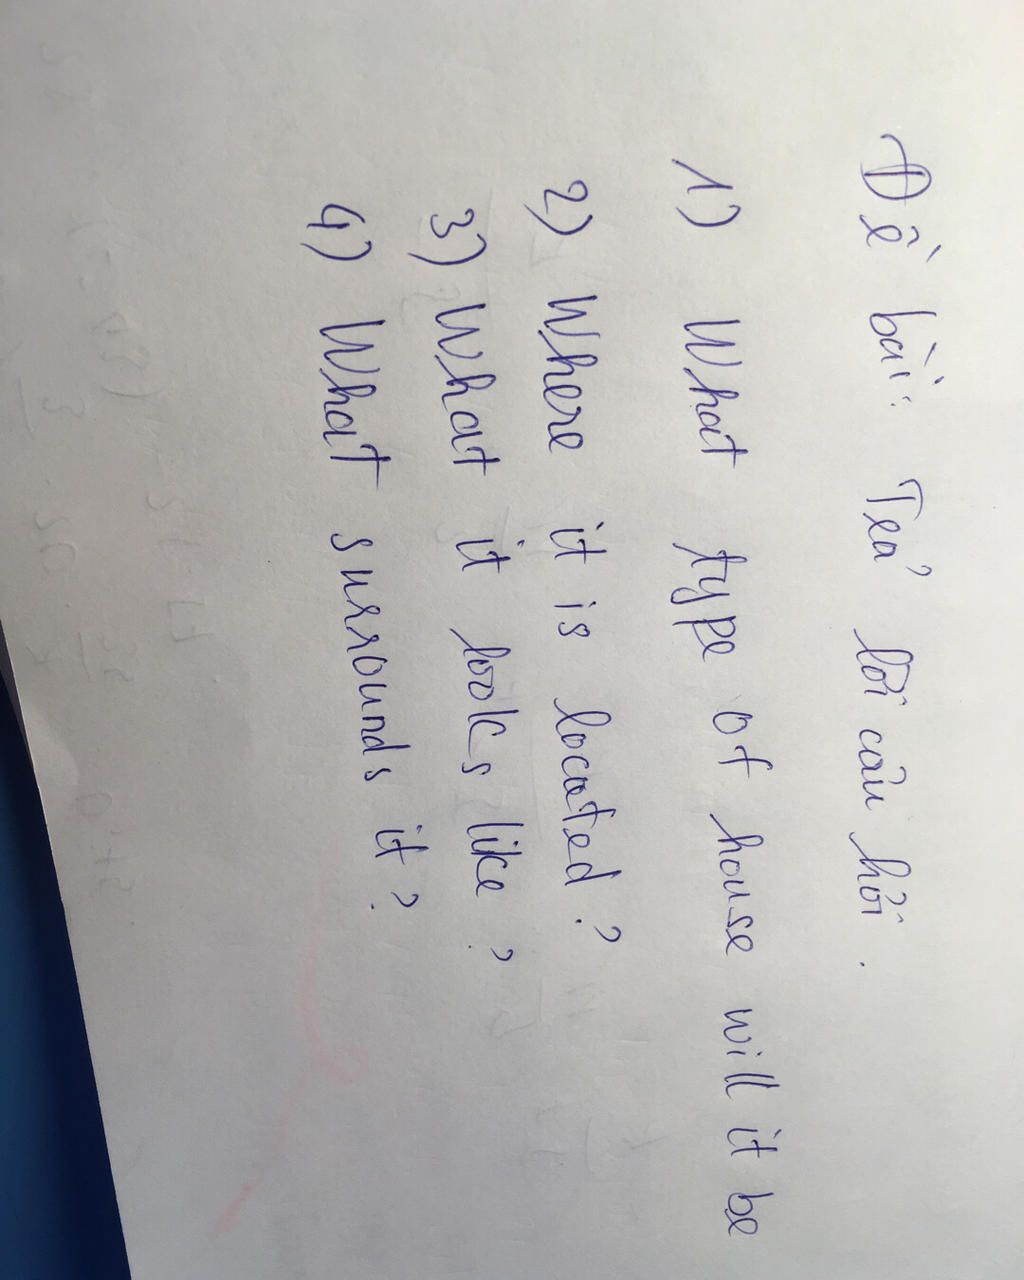 Đề bài: Trả lời câu hỏi.
1) What type of house will it be
2) Where it is located?
3) What it looks like?
4) What surrounds it?